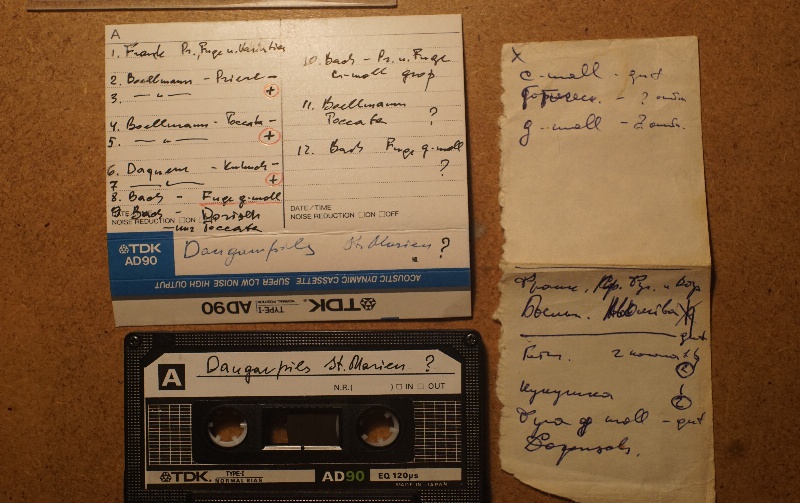 A
1. Frank Pr., Fuge u. Variation
2. Boellmann - Prière -
3. — " — +
4. Boellmann - Toccata -
5. — " — +
6. Daquin - Kukuck -
7 — " — +
8. Bach - Fuge g-moll
9. Bach - Dorisch
Toccata
NOISE REDUCTION □ON
10. Bach - Pr. u. Fuge
c-moll
11. Boellmann
Toccata ?
12. Bach Fuge g-moll
?
DATE/TIME
NOISE REDUCTION □ON □OFF
TDK
AD90
Daugavpils St. Marien ?
ACOUSTIC DYNAMIC CASSETTE SUPER LOW NOISE HIGH OUTPUT
TDK. TYPE I NORMAL POSITION AD90
A Daugavpils St. Marien ?
N.R.( ) □ IN □ OUT
TDK TYPE I NORMAL BIAS AD90 EQ 120µs
MADE IN JAPAN
x
c-moll - gut
g-moll - 2
Франк. Пр. Фуг. и Вар
Боельм. Молитва
gut
2
Кукушка
2
Фуга g moll - gut